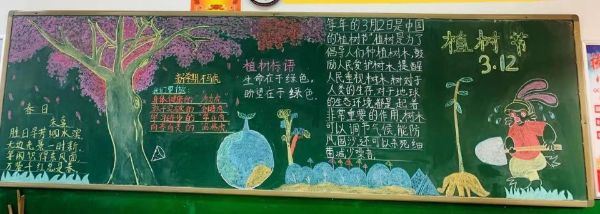 春日
朱熹
胜日寻芳泗水滨
无边光景一时新
等闲识得东风面
万紫千红总是春
新学期不同
植树标语
生命在于绿色,
希望在于绿色.
每年的3月12日是中国
的"植树节"植树是为了
倡导人们种植树木,鼓
励人民爱护树木,提醒
人民重视树木.树对于
人类的生存,对于地球
的生态环境都是起着
非常重要的作用,树木
可以调节气候,能防
风固沙,还可以杀死细
菌,减少噪音.
植树节
3.12